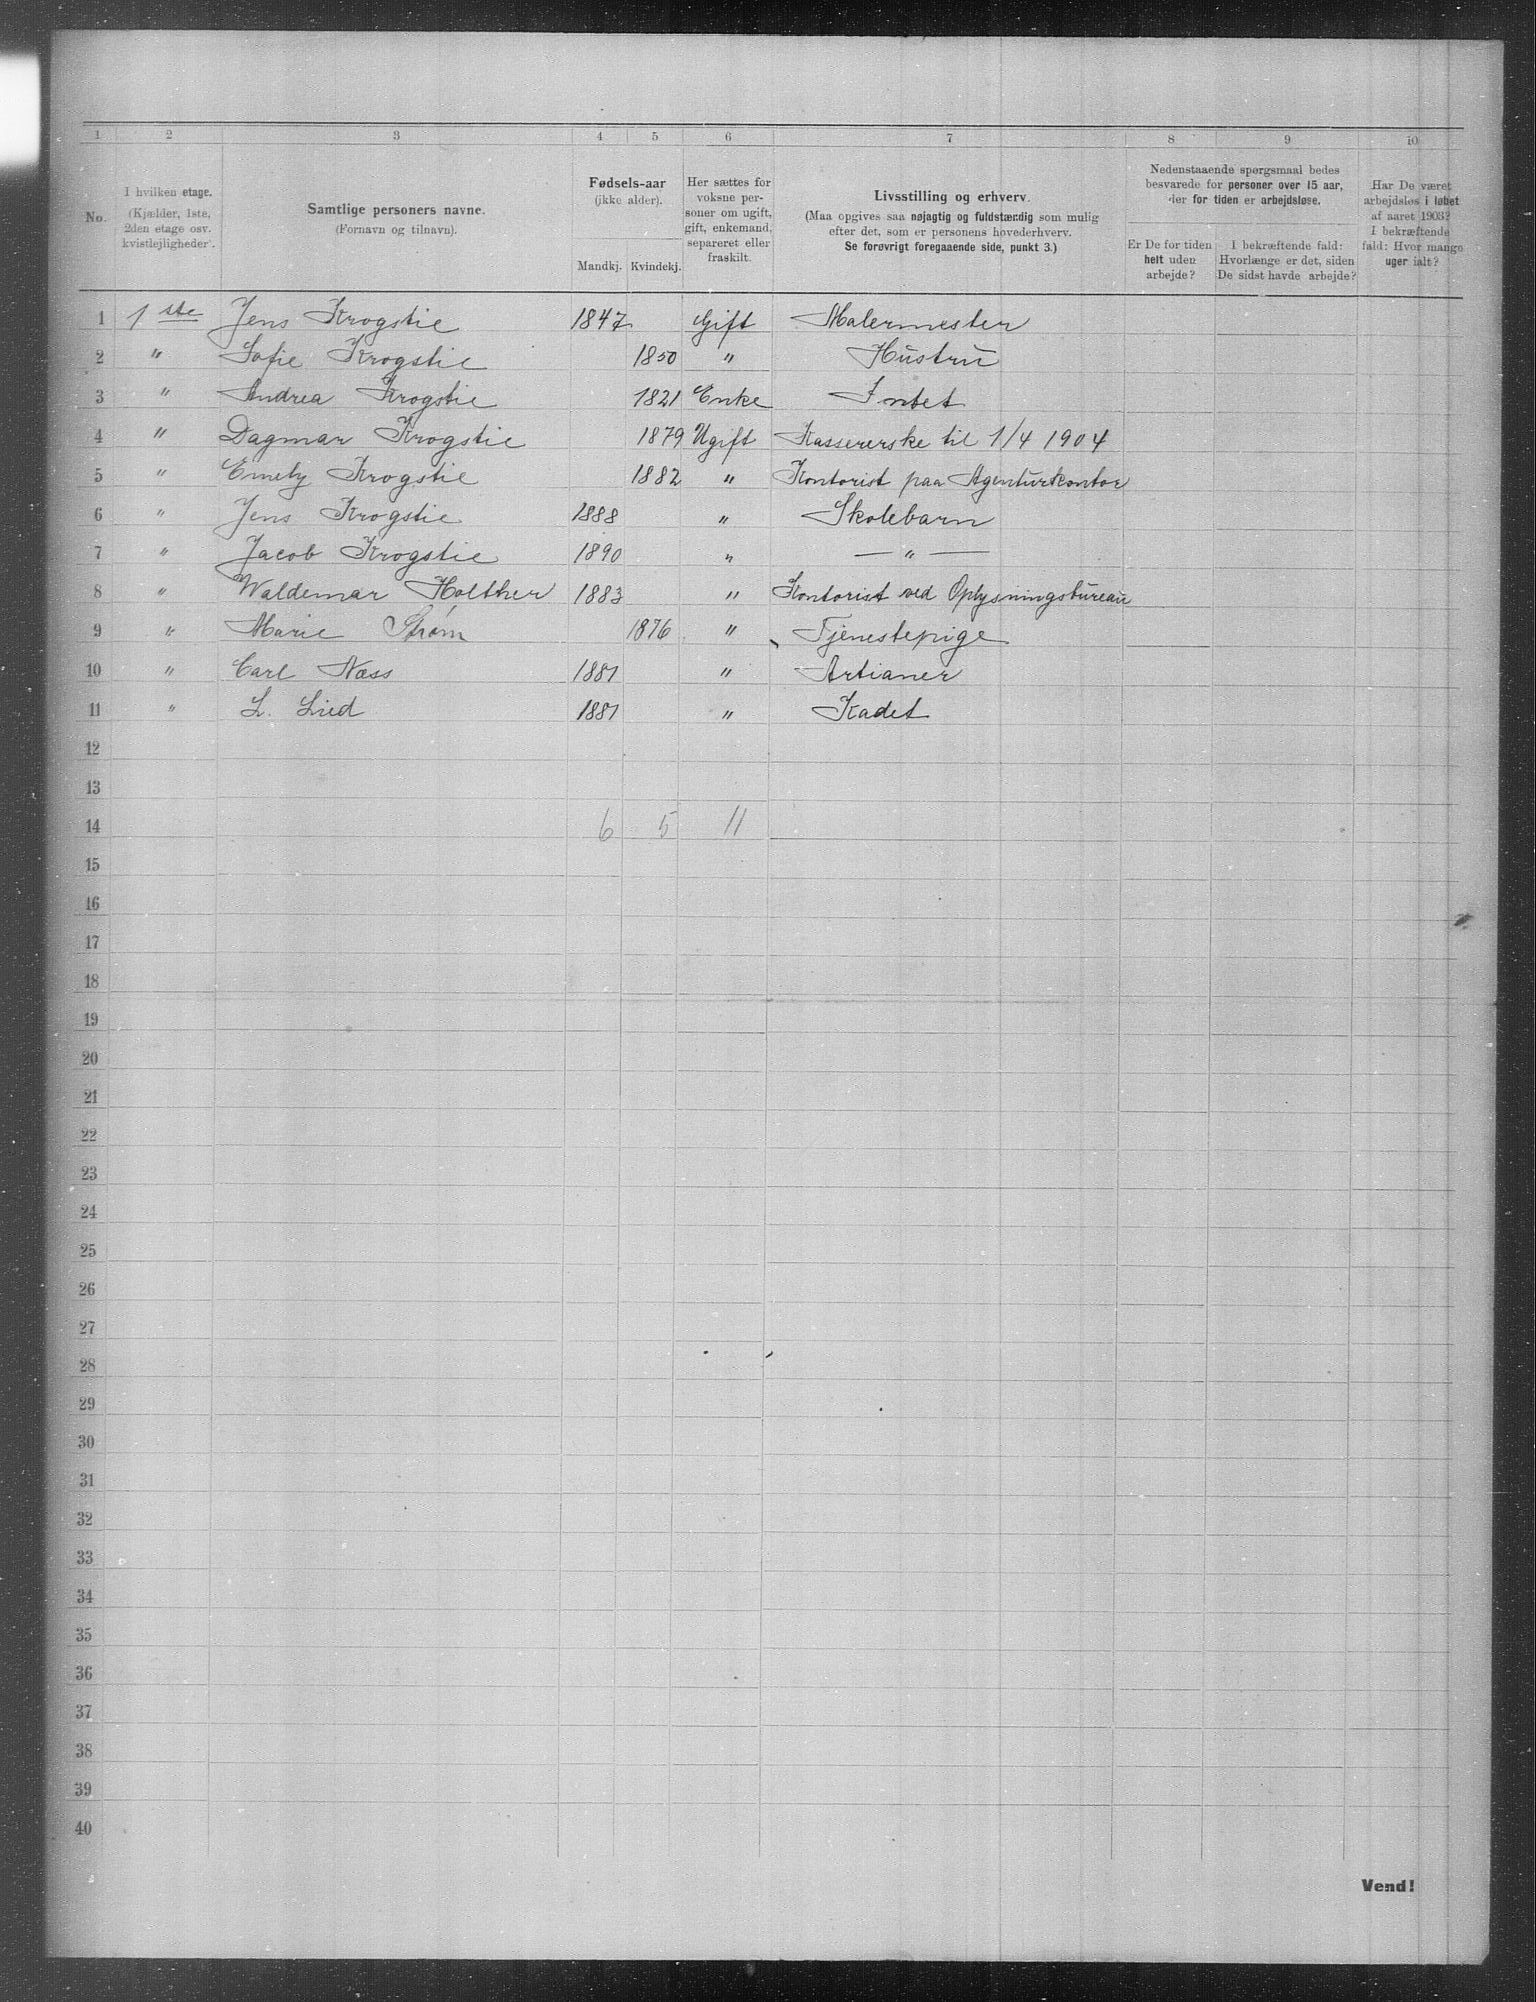 1 2 3 4 5 6 7 8 9 10
No.
I hvilken etage.
(Kjælder, 1ste,
2den etage osv.
kvistlejligheder).
Samtlige personers navne.
(Fornavn og tilnavn).
Fødsels-aar
(ikke alder).
Mandkj. Kvindekj.
Her sættes for
voksne per-
soner om ugift,
gift, enkemand,
separeret eller
fraskilt.
Livsstilling og erhverv.
(Maa opgives saa nøjagtig og fuldstændig som mulig
efter det, som er personens hovederhverv.
Se forøvrigt foregaaende side, punkt 3.)
Nedenstaaende spørgsmaal bedes
besvarede for personer over 15 aar,
der for tiden er arbejdsløse.
Er De for tiden
helt uden
arbejde?
I bekræftende fald:
Hvorlænge er det, siden
De sidst havde arbejde?
Har De været
arbejdsløs i løbet
af aaret 1903?
I bekræftende
fald: Hvor mange
uger ialt?
1 1 ste Jens Krogstie 1847 Gift Malermester
2 " Sofie Krogstie 1850 " Hustru
3 " Andrea Krogstie 1821 Enke Intet
4 " Dagmar Krogstie 1879 Ugift Kassererske til 1/4 1904
5 " Emely Krogstie 1882 " Kontorist paa Agenturkontor
6 " Jens Krogstie 1888 " Skolebarn
7 " Jacob Krogstie 1890 " — " —
8 " Waldemar Holther 1883 " Kontorist ved Oplysningsbureau
9 " Marie Strøm 1876 " Tjenestepige
10 " Carl Næss 1881 " Artianer
11 " L. Lied 1881 " Kadet
12
13
14 6 5 11
15
16
17
18
19
20
21
22
23
24
25
26
27
28
29
30
31
32
33
34
35
36
37
38
39
40
Vend!